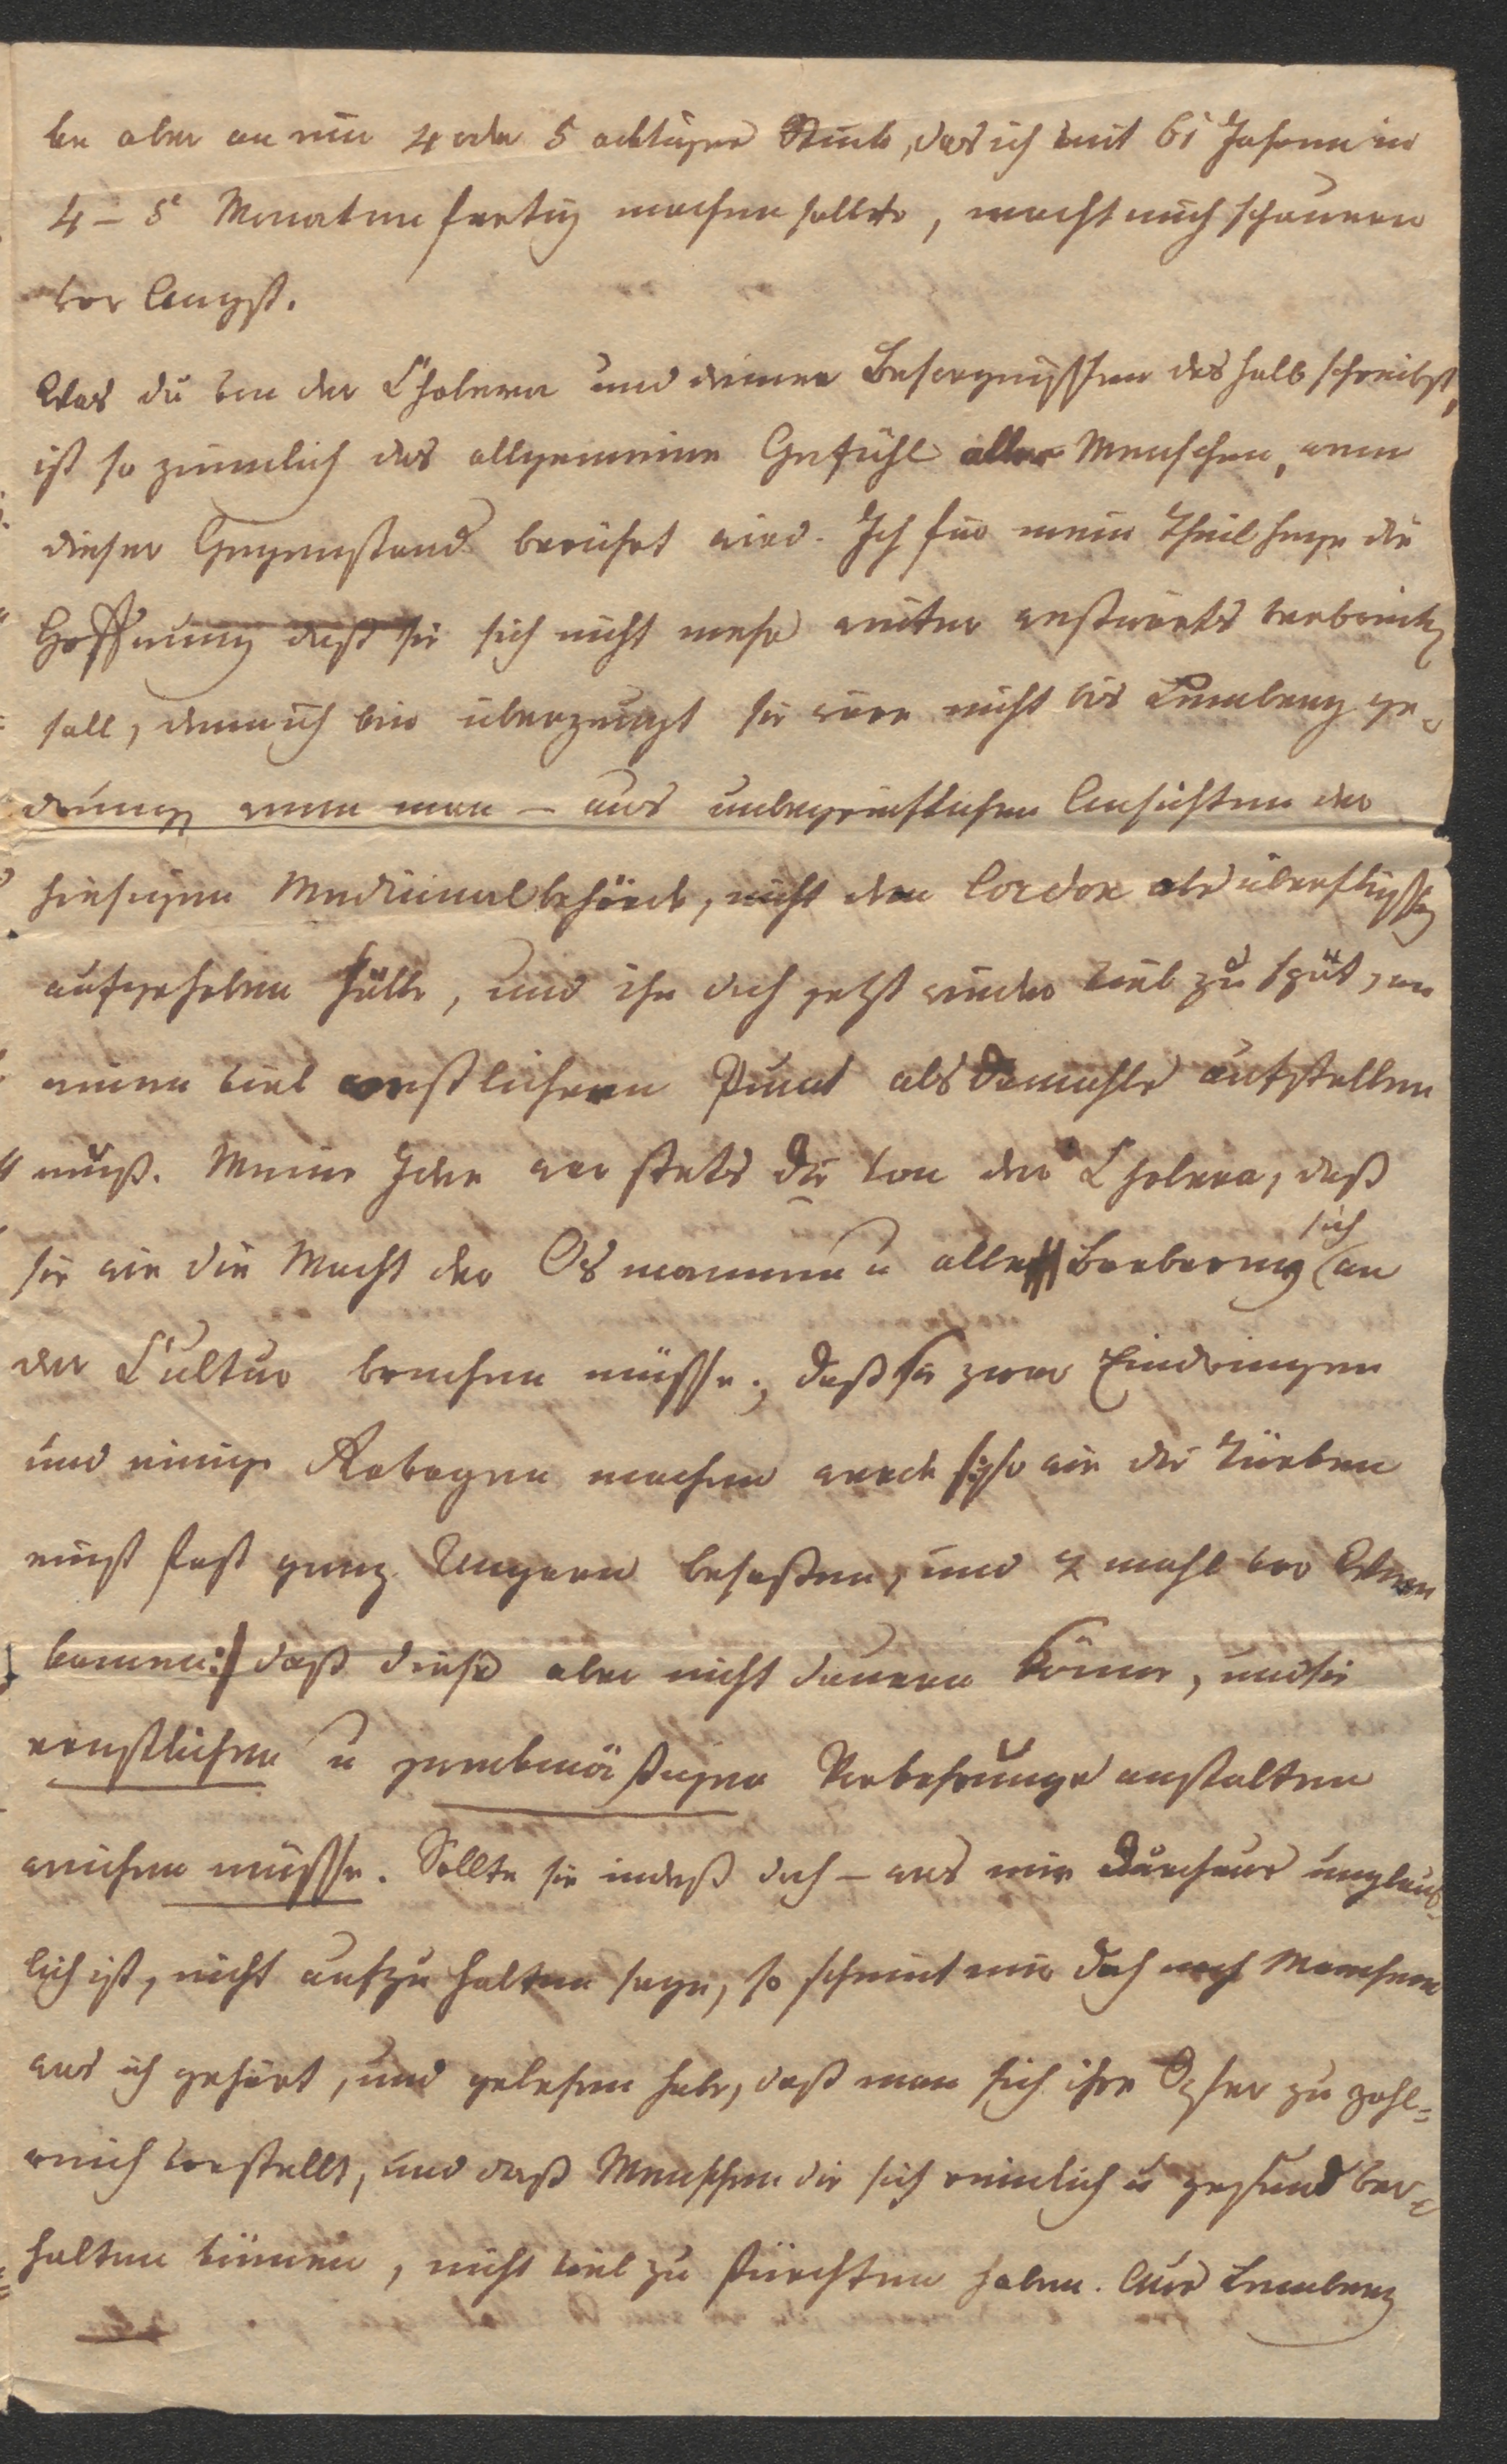 ke aber an ein 4 oder 5 aktiges Stück, das ich mit 61 Jahren in
4 – 5 Monaten fertig machen sollte, macht mich schauern
vor Angst.
Was du von der Cholera und deinen Besorgnissen deshalb schreibst,
ist so ziemlich das allgemeine Gefühl aller Menschen, wenn
dieser Gegenstand berührt wird. Ich für mein Theil hege die
Hoffnung daß sie sich nicht mehr weiter westwärts verbreiten
soll, denn ich bin überzeugt sie wäre nicht bis Lemberg ge-
drungen wenn man – aus unbegreiflichen Ansichten der
hiesigen Medicinalbehörde, nicht den Cordon als überflüssig
aufgehoben hätte, und ihn doch jetzt wieder viel zu spät, an
einem viel westlichern Punct als damahls aufstellen
muß. Meine Idee war stets die von der Cholera, daß
sie wie die Macht der Osmannen u aller Barbarey sich an
der Cultur brechen müsse; daß sie zwar Eindringen
und einige Ravagen machen werde so wie die Türken
einst fast ganz Ungern besaßen, und 2 mahl vor Wien
kamen: daß dieß aber nicht dauern könne, und sie
ernstlichen u zweckmäßigen Vorkehrungsanstalten
weichen müsse. Sollte sie indeß doch – was mir durchaus unglaub-
lich ist, nicht aufzuhalten seyn, so scheint mir doch nach Manchem
was ich gehört, und gelesen habe, daß man sich ihre Opfer zu zahl-
reich vorstellt, und daß Menschen die sich reinlich u gesund ver-
halten können, nicht viel zu fürchten haben. Aus Lemberg